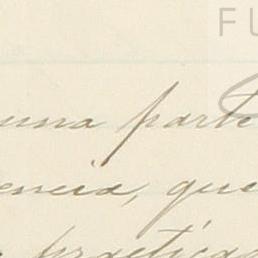 FU
una parte
encia, que
practica